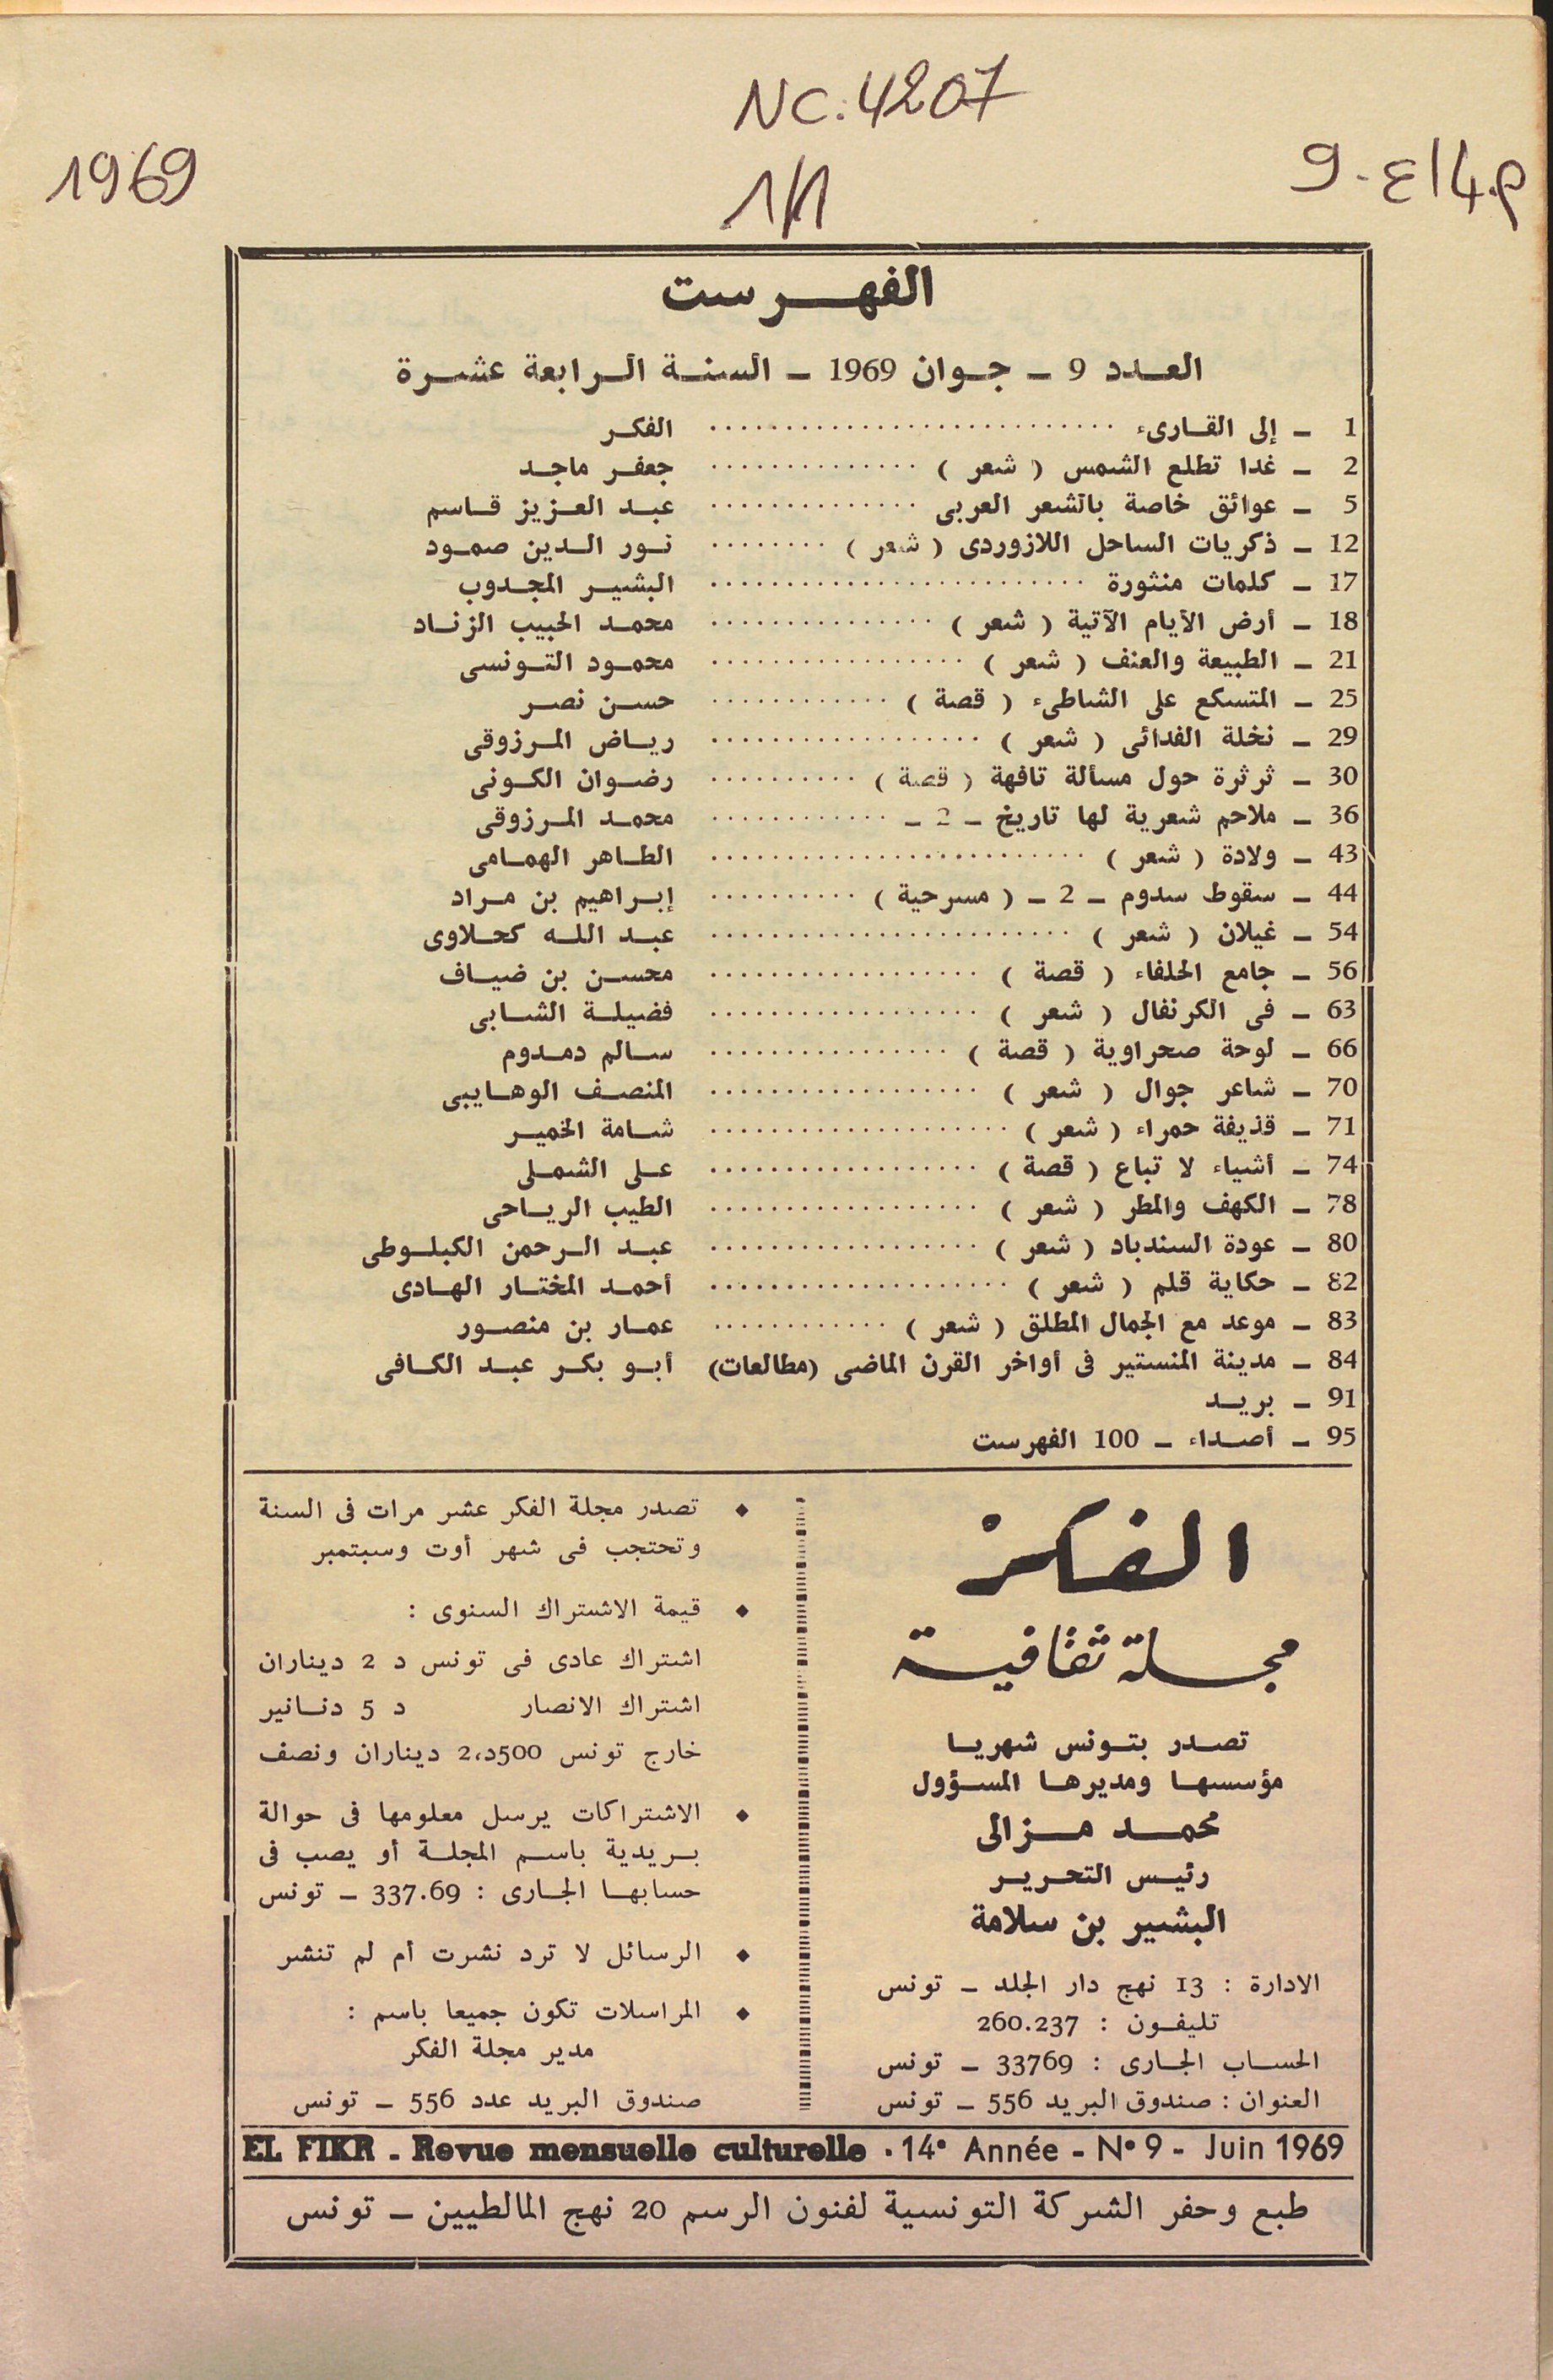 NC: 4207
1969
1/1
9-ع14.م
الفهرست
العدد 9 – جوان 1969 – السنة الرابعة عشرة
1 – إلى القارىء .......... الفكر
2 – غدا تطلع الشمس ( شعر ) .......... جعفر ماجد
5 – عوائق خاصة بالشعر العربى .......... عبد العزيز قاسم
12 – ذكريات الساحل اللازوردى ( شعر ) .......... نور الدين صمود
17 – كلمات منثورة .......... البشير المجدوب
18 – أرض الأيام الآتية ( شعر ) .......... محمد الحبيب الزناد
21 – الطبيعة والعنف ( شعر ) .......... محمود التونسى
25 – المتسكع على الشاطىء ( قصة ) .......... حسن نصر
29 – نخلة الفدائى ( شعر ) .......... رياض المرزوقى
30 – ثرثرة حول مسألة تافهة ( قصة ) .......... رضوان الكونى
36 – ملاحم شعرية لها تاريخ – 2 – .......... محمد المرزوقى
43 – ولادة ( شعر ) .......... الطاهر الهمامى
44 – سقوط سدوم – 2 – ( مسرحية ) .......... إبراهيم بن مراد
54 – غيلان ( شعر ) .......... عبد الله كحلاوى
56 – جامع الحلفاء ( قصة ) .......... محسن بن ضياف
63 – فى الكرنفال ( شعر ) .......... فضيلة الشابى
66 – لوحة صحراوية ( قصة ) .......... سالم دمدوم
70 – شاعر جوال ( شعر ) .......... المنصف الوهايبى
71 – قذيفة حمراء ( شعر ) .......... شامة الخمير
74 – أشياء لا تباع ( قصة ) .......... على الشملى
78 – الكهف والمطر ( شعر ) .......... الطيب الرياحى
80 – عودة السندباد ( شعر ) .......... عبد الرحمن الكبلوطى
82 – حكاية قلم ( شعر ) .......... أحمد المختار الهادى
83 – موعد مع الجمال المطلق ( شعر ) .......... عمار بن منصور
84 – مدينة المنستير فى أواخر القرن الماضى (مطالعات) أبو بكر عبد الكافى
91 – بريد
95 – أصداء – 100 الفهرست
الفكر
مجلة ثقافية
تصدر بتونس شهريا
مؤسسها ومديرها المسؤول
محمد مزالى
رئيس التحرير
البشير بن سلامة
الادارة : 13 نهج دار الجلد – تونس
تليفون : 260.237
الحساب الجارى : 33769 – تونس
العنوان : صندوق البريد 556 – تونس
♦ تصدر مجلة الفكر عشر مرات فى السنة
وتحتجب فى شهر أوت وسبتمبر
♦ قيمة الاشتراك السنوى :
اشتراك عادى فى تونس د 2 ديناران
اشتراك الانصار د 5 دنانير
خارج تونس 500د،2 ديناران ونصف
♦ الاشتراكات يرسل معلومها فى حوالة
بريدية باسم المجلة أو يصب فى
حسابها الجارى : 337.69 – تونس
♦ الرسائل لا ترد نشرت أم لم تنشر
♦ المراسلات تكون جميعا باسم :
مدير مجلة الفكر
صندوق البريد عدد 556 – تونس
EL FIKR - Revue mensuelle culturelle . 14e Année - N° 9 - Juin 1969
طبع وحفر الشركة التونسية لفنون الرسم 20 نهج المالطيين – تونس